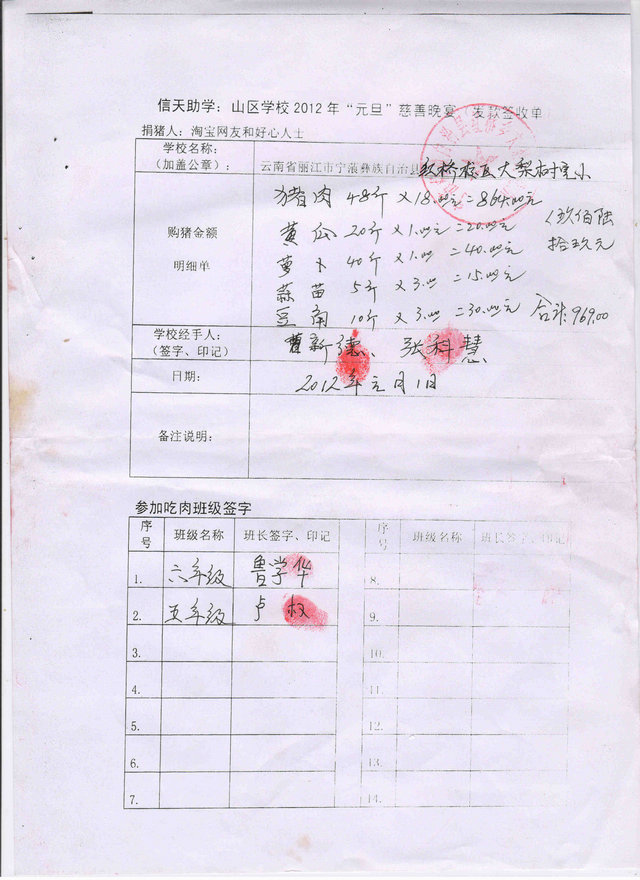 信天助学：山区学校2012年“元旦”慈善晚宴（发款签收单）
捐猪人：淘宝网友和好心人士
学校名称：
（加盖公章）：
云南省丽江市宁蒗彝族自治县 大梨树完小
购猪金额
明细单
猪肉 48斤 × 18.00元 = 864.00元
黄瓜 20斤 × 1.00元 = 20.00元
萝卜 40斤 × 1.00 = 40.00元
蒜苗 5斤 × 3.00 = 15.00元
豆角 10斤 × 3.00 = 30.00元 合计：969.00
（玖佰陆
拾玖元
学校经手人：
（签字、印记）
曹新德、张科慧
日期：
2012年元月1日
备注说明：
参加吃肉班级签字
序号 班级名称 班长签字、印记 序号 班级名称 班长签字、印记
1. 六年级 鲁学华 8.
2. 五年级 卢权 9.
3. 10.
4. 11.
5. 12.
6. 13.
7. 14.